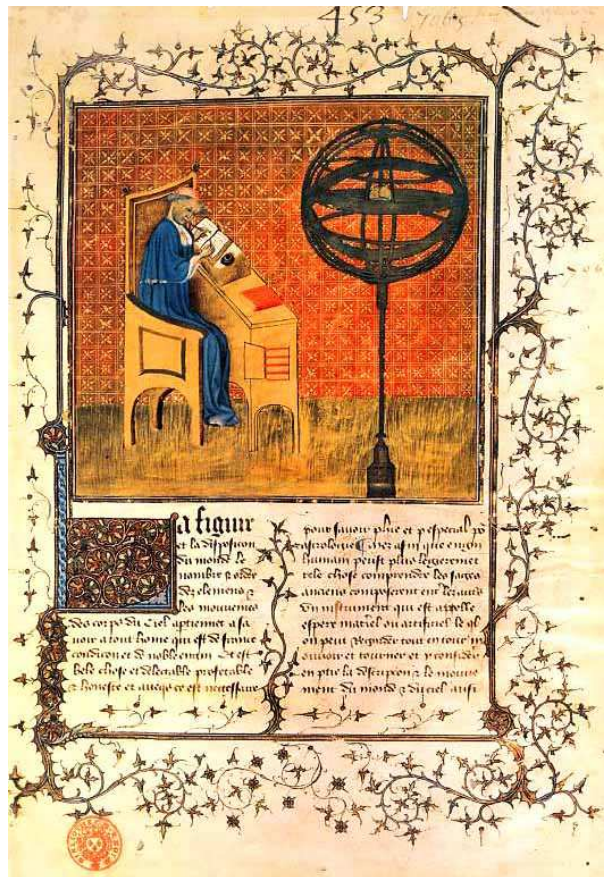 453
7065
La figure
et la disposicion
du monde le
nombre & ordre
des elemens &
les mouvemens
des corps du ciel aptiennent a sa
voir a tout home qui est de france
condicion et de noble engin Et est
bele chose et delectable profetable
& honeste et avecq~s ce est necessaire
pour savoir plus et p especial po
astrologie Car afin que engin
humain peust plus legierement
tele chose comprendre les sages
anciens composerent
un instrument qui est appelle
espere materiel ou artificiel le ql
on peut regarder tout en tour
mouvoir et tourner et p considerer
en ptie la descripcion & le mouve
ment du monde & du ciel aussi